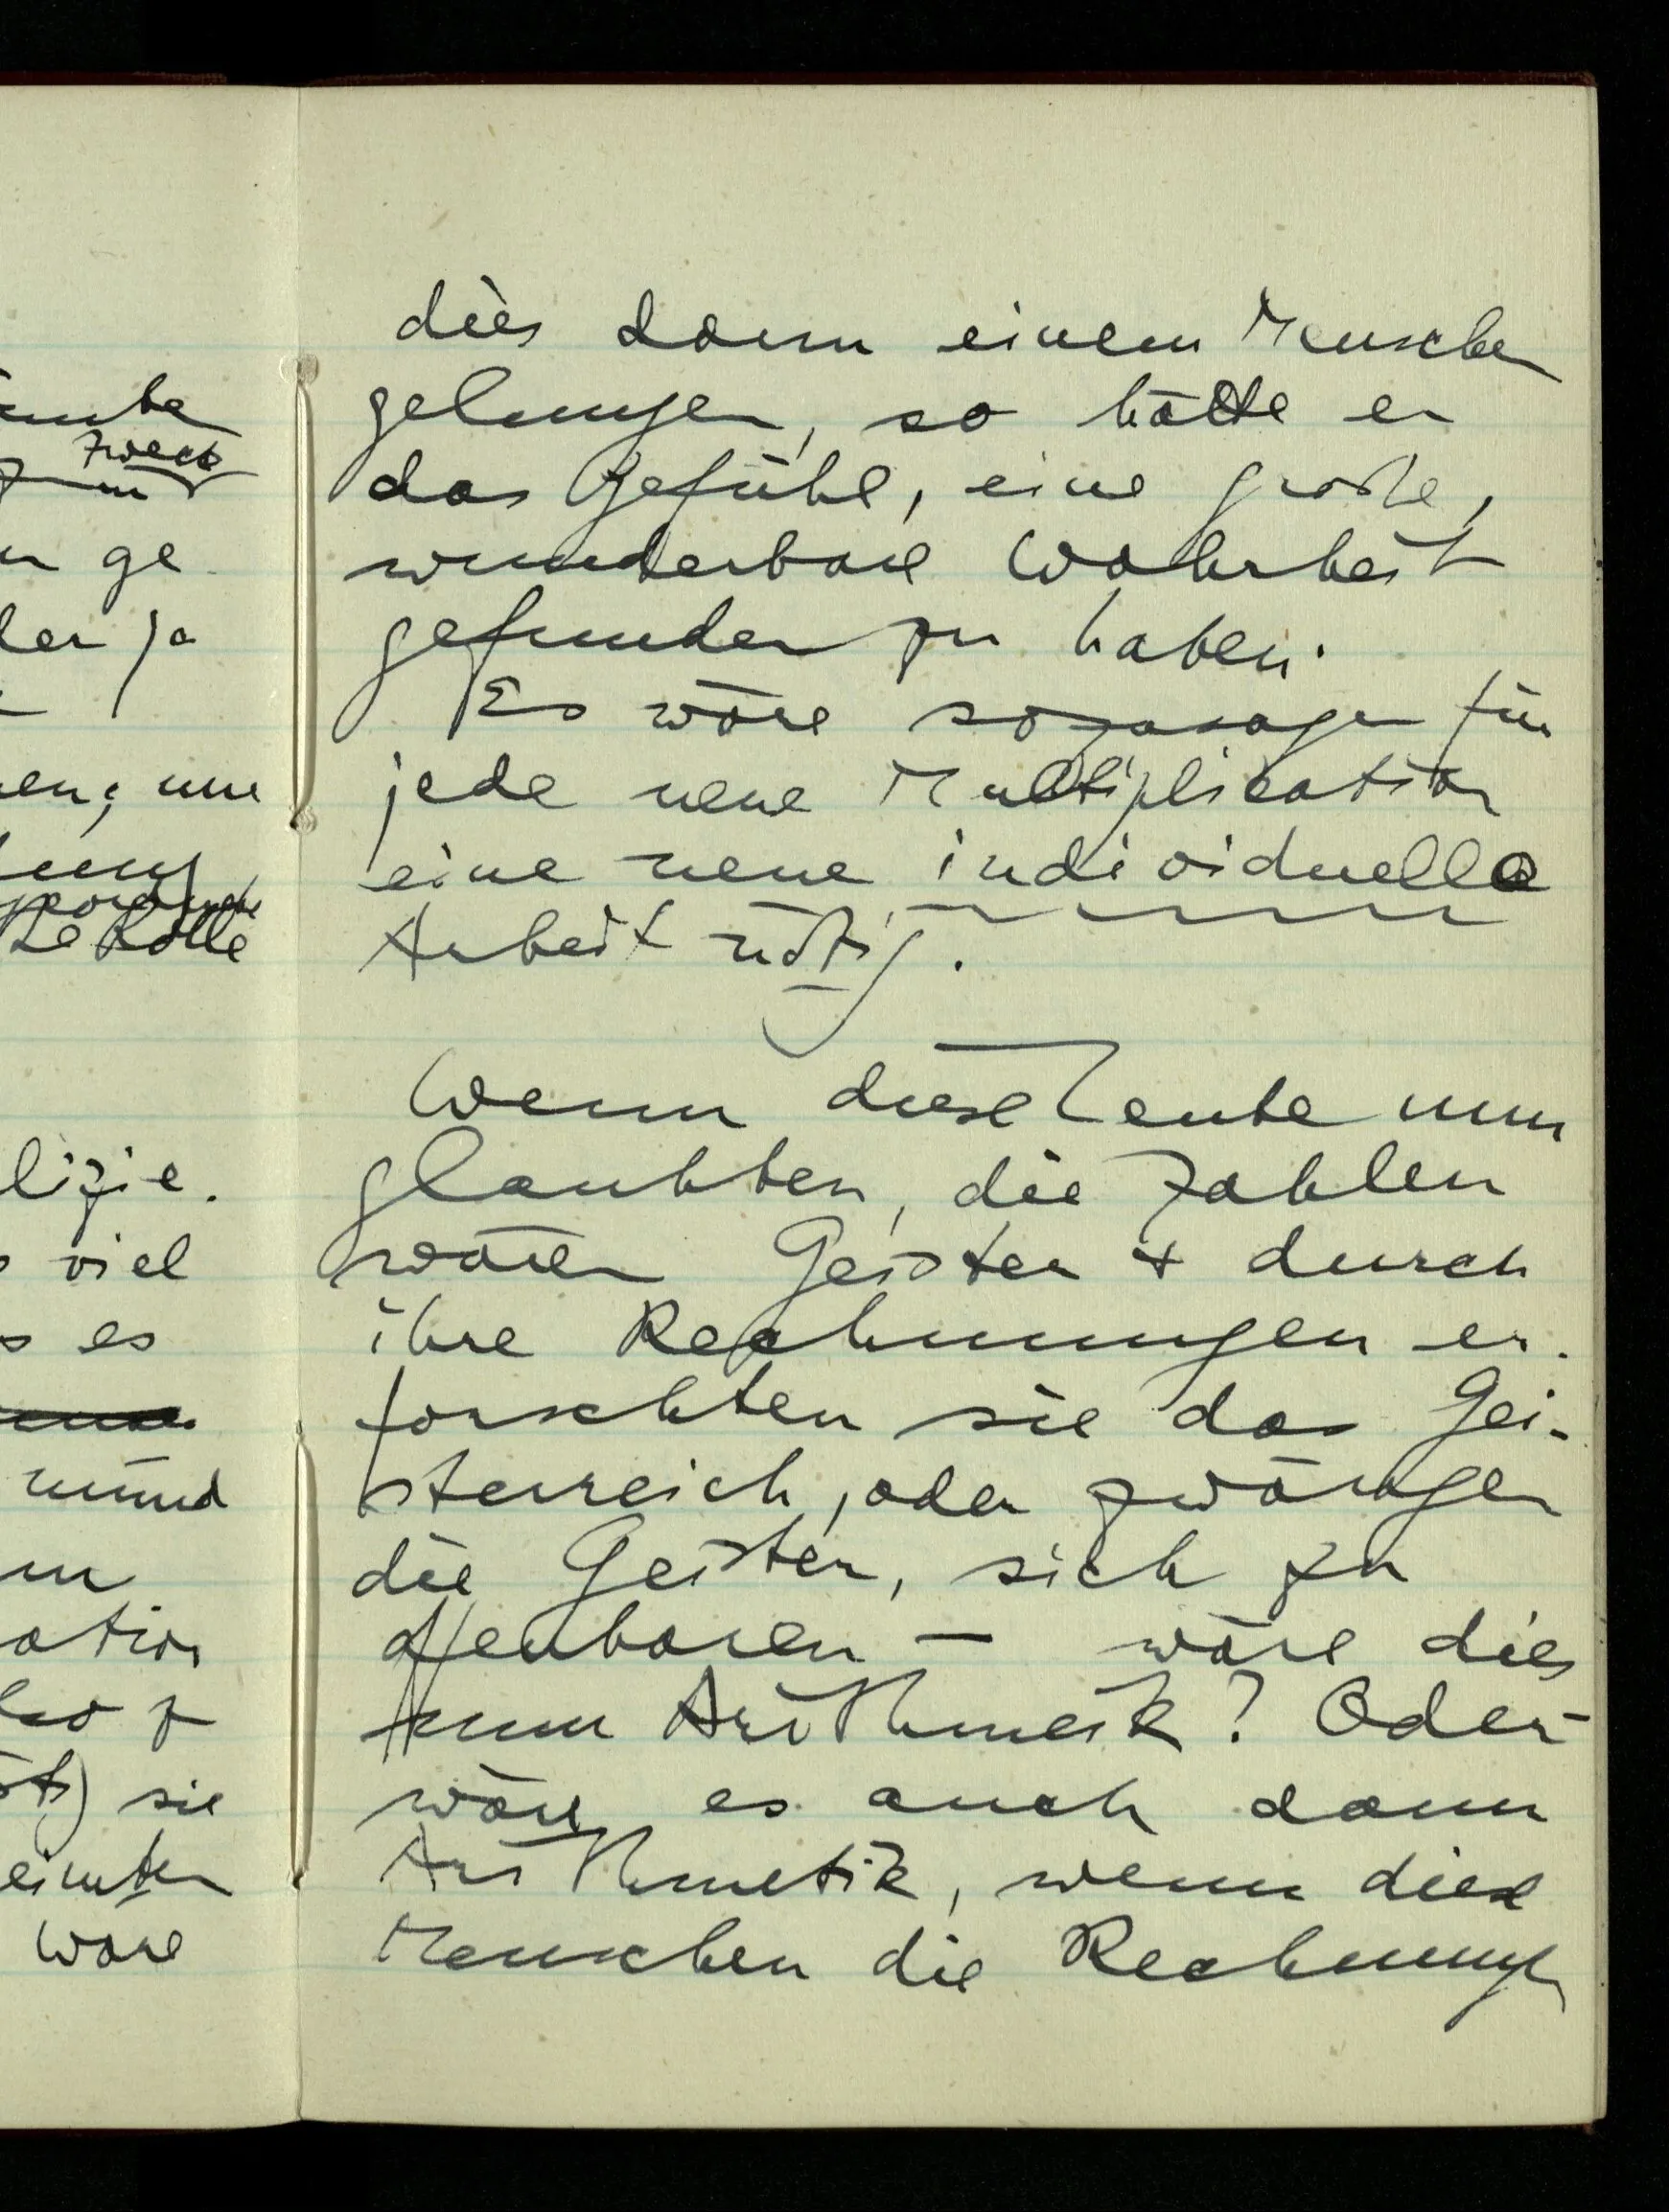 zweck
ge
ja
lizie.
viel
es
sie
wäre
dies dann einem Menschen
gelungen, so hätte er
das Gefühl, eine große,
wunderbare Wahrheit
gefunden zu haben.
Es wäre sozusagen für
jede neue Multiplication
eine neue individuelle
Arbeit nötig.
Wenn diese Leute nun
glaubten, die Zahlen
wären Geister + durch
ihre Rechnungen er-
forschten sie das Gei-
sterreich, oder zwängen
die Geister, sich zu
offenbaren – wäre dies
nun Arithmetik? Oder –
wäre es auch dann
Arithmetik, wenn diese
Menschen die Rechnungen